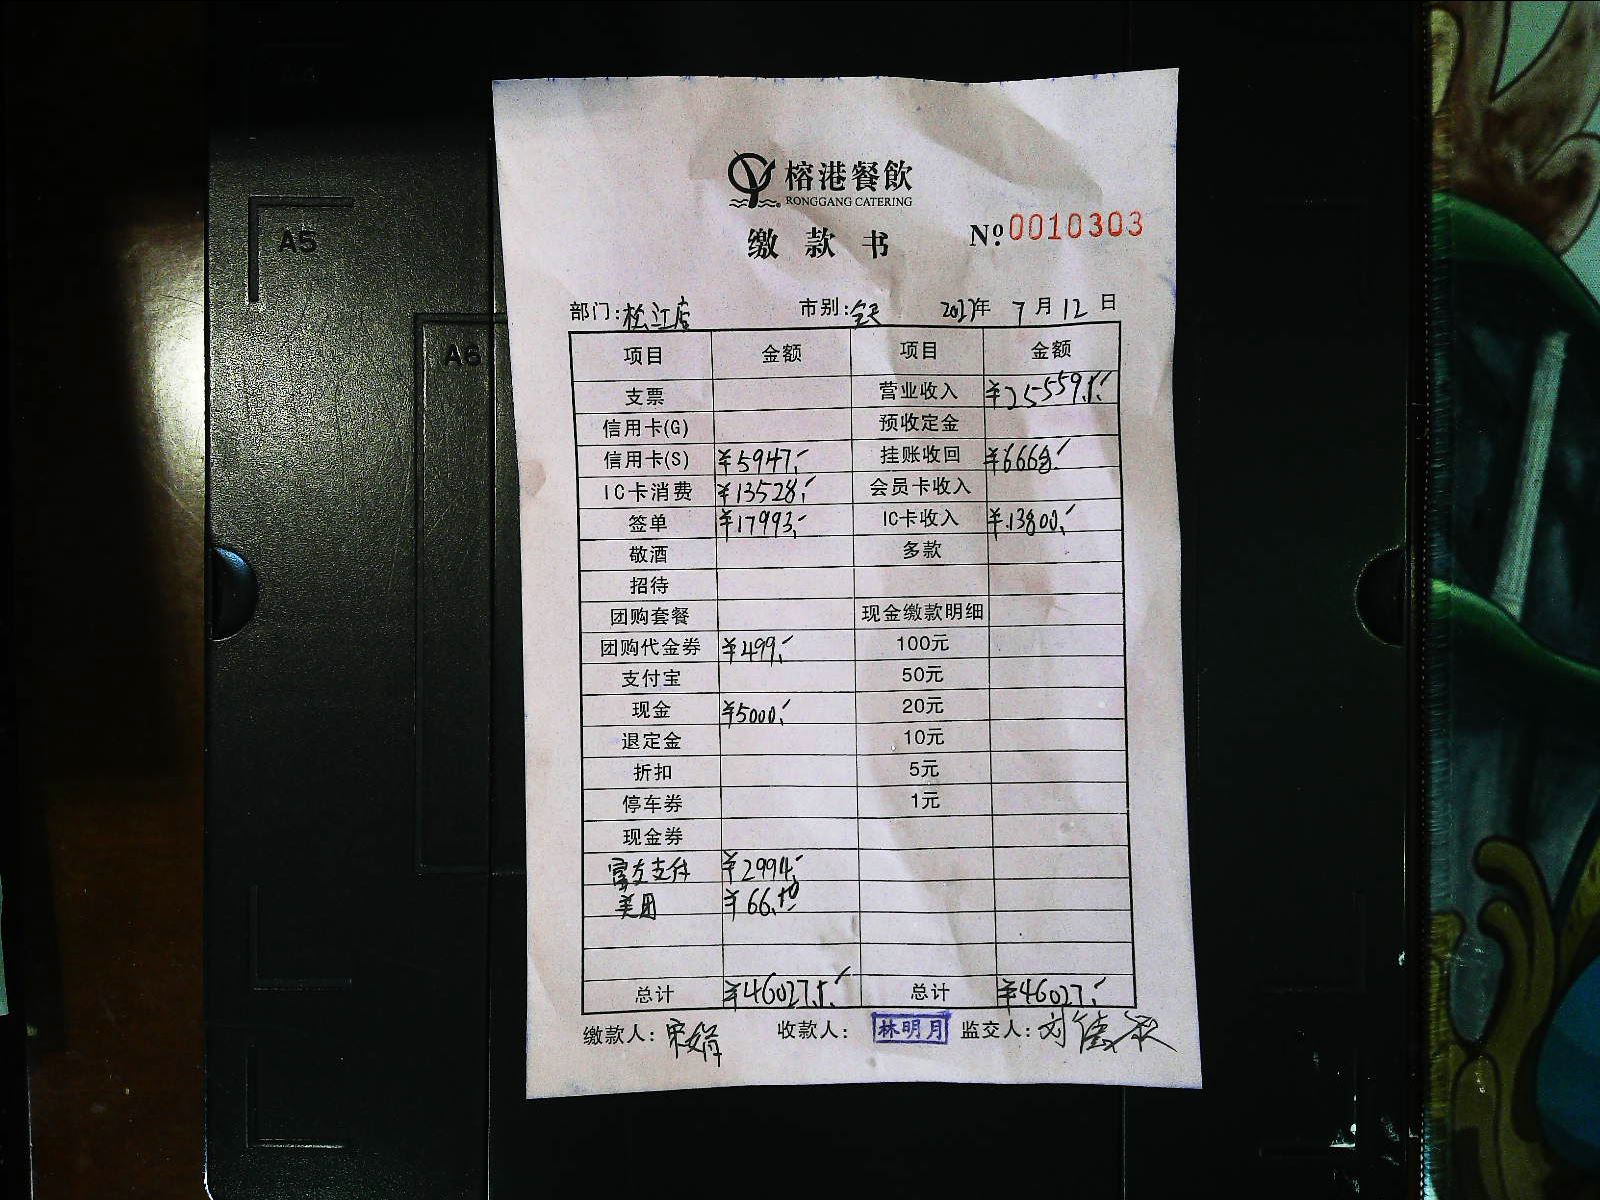 A5
A6
榕港餐飲
RONGGANG CATERING
缴款书
№ 0010303
部门: 松江店 市别: 全天 2017年 7月12日
项目 金额 项目 金额
支票 营业收入 ¥25559.
信用卡(G) 预收定金
信用卡(S) ¥5947.- 挂账收回 ¥6668.-
IC卡消费 ¥13528.- 会员卡收入
签单 ¥17993.- IC卡收入 ¥13800.-
敬酒 多款
招待
团购套餐 现金缴款明细
团购代金券 ¥499.- 100元
支付宝 50元
现金 ¥5000.- 20元
退定金 10元
折扣 5元
停车券 1元
现金券
富友支付 ¥2994.-
美团 ¥66.
总计 ¥46027. 总计 ¥46027.-
缴款人: 宋 收款人: 林明月 监交人: 刘